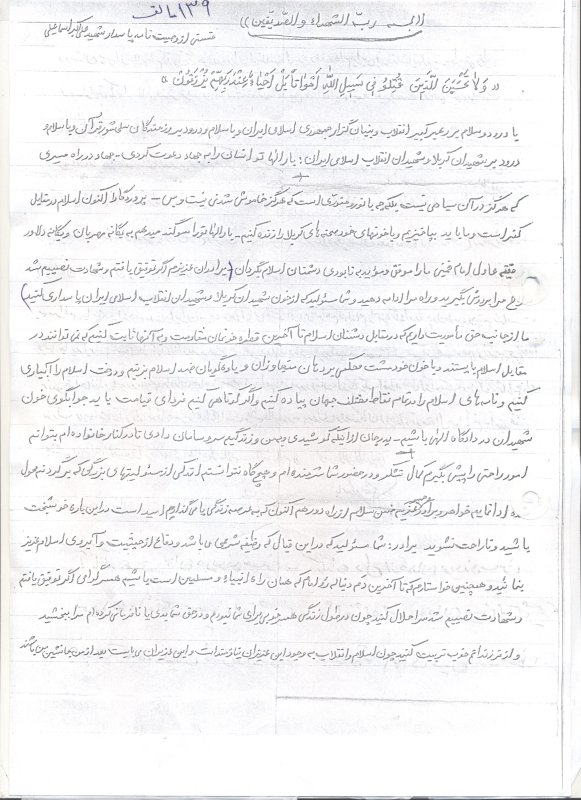 ۱۳۹ الف
((بسمه ربّ الشهداء والصّدیقین))
قسمتی از وصیت نامه پاسدار شهید علی اکبر اسماعیلی
« وَلا تَحْسَبَنَّ الَّذینَ قُتِلُو فِی سَبیلِ اللهِ اَمْواتاً بَلْ اَحْیاءٌ عِنْدَ رَبِّهِمْ یُرْزَقُونَ »
با درود و سلام بر رهبر کبیر انقلاب و بنیان گزار جمهوری اسلامی ایران و با سلام و درود بر رزمندگان سلحشور قرآن و با سلام و
درود بر شهیدان کربلا و شهیدان انقلاب اسلامی ایران: بارالها تو انسان را به جهاد دعوت کردی - جهاد در راه مسیری
که هرگز در آن سیاهی نیست بلکه چه با نور و منوّری است که هرگز خاموش شدنی نیست و بس - پروردگارا اکنون اسلام در مقابل
کفر است و ما باید بپاخیزیم و با خونهای خود صحنه های کربلا را زنده کنیم - بارالها تو را سوگند میدهم به یگانه مهربان و یگانه دلاور
فقیه عادل امام خمینی ما را موفق و مؤید به نابودی دشمنان اسلام بگردان (برادران عزیزم اگر توفیق یافتم و شهادت نصیبم شد
راه مرا در پیش بگیرید و راه مرا ادامه دهید و شما مسئولید که از خون شهیدان کربلا و شهیدان انقلاب اسلامی ایران پاسداری کنید)
ما از جانب حق مأموریت داریم که در مقابل دشمنان اسلام تا آخرین قطره خونمان مقاومت و به آنها ثابت کنیم که نمی توانند در
مقابل اسلام بایستند و با خون خود مشت محکمی بر دهان متجاوزان و یاوه گویان ضد اسلام بزنیم و درخت اسلام را آبیاری
کنیم و نامهای اسلام را در تمام نقاط مختلف جهان پیاده کنیم و اگر کوتاهی کنیم فردای قیامت باید جوابگوی خون
شهیدان در دادگاه الهی باشیم - پدر جان از اینکه کوشیدی و بمن و زندگیم سر و سامان دادی تا در کنار خانواده ام بتوانم
امور راحتی را پیش بگیرم کمال تشکر و در حضور شما شرمنده ام و هیچ گاه نتوانستم اندکی از مسئولیتهای بزرگی که بر گردنم بود
ادا نمایم خواهر و برادر عزیزم ضمن سلام از راه دور هم اکنون که به عرصه زندگی پا می گذاریم امید است در این باره خوشبخت
باشید و ناراحت نشوید برادر: شما مسئولید که در این قبال که وظیفه شرعی می باشد و دفاع از حیثیت و آبروی اسلام عزیز
بنمائید و همچنین خواستارم که تا آخرین دم دنباله رو امام که همان راه انبیاء و مسلمین است باشیم همسر گرامی اگر توفیق یافتم
و شهادت نصیبم شد مرا حلال کنید چون در طول زندگی همسر خوبی برای شما نبودم و در حق شما بدی یا نافرمانی کرده ام مرا ببخشید
و از فرزندانم خوب تربیت کنید چون اسلام و انقلاب به وجود این عزیزان نیازمند است و این عزیزان می بایست بعد از من جانشین من باشند